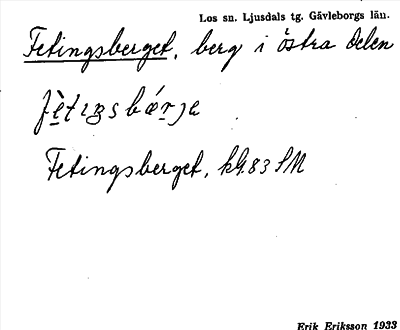 Los sn. Ljusdals tg. Gävleborgs län.
Fetingsberget, berg i östra delen
Fetingsberget, kG.83 SM
Erik Eriksson 1933